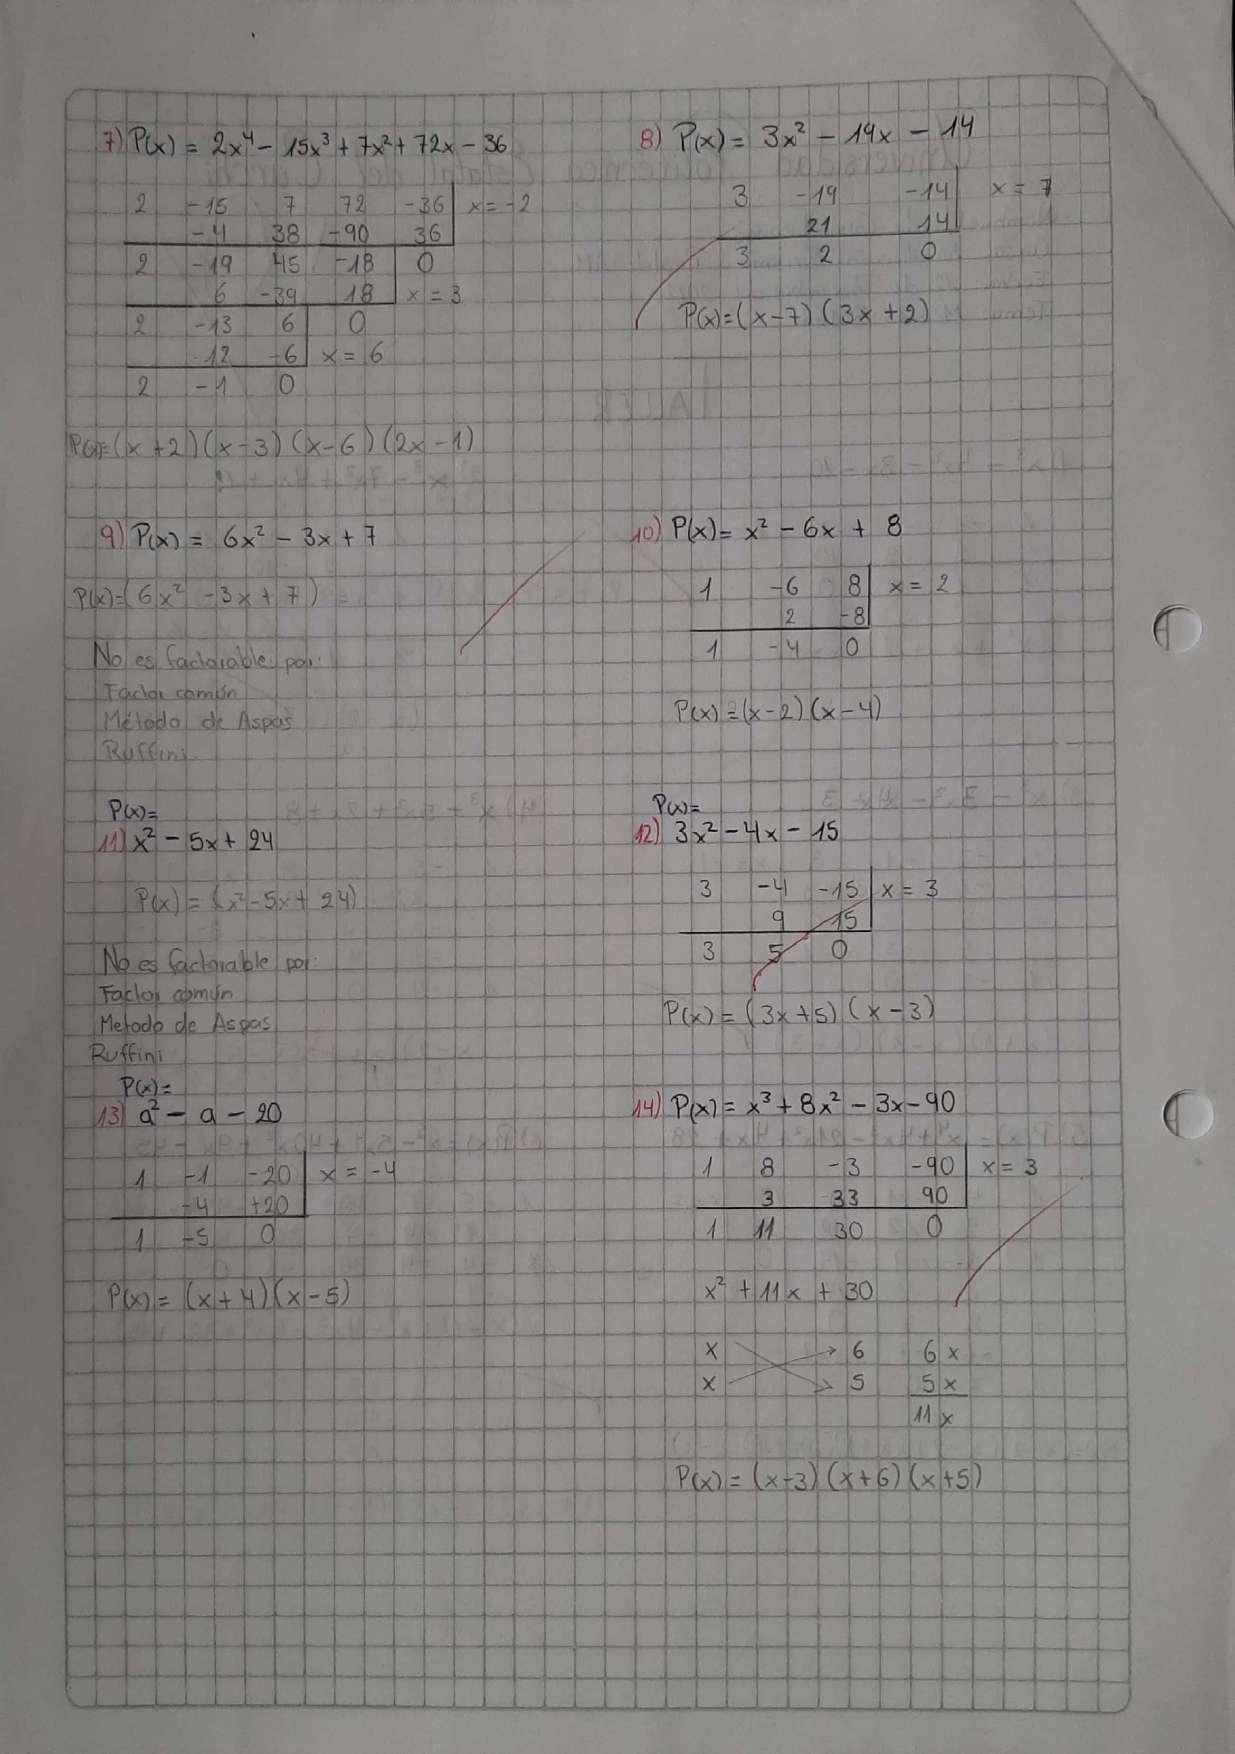 7) P(x) = 2x⁴ - 15x³ + 7x² + 72x - 36
2 -15 7 72 -36 x = -2
-4 38 -90 36
2 -19 45 -18 0
6 -39 18 x = 3
2 -13 6 0
12 -6 x = 6
2 -1 0
P(x)=(x+2)(x-3)(x-6)(2x-1)
8) P(x) = 3x² - 19x - 14
3 -19 -14 x = 7
21 14
3 2 0
P(x)=(x-7)(3x+2)
9) P(x) = 6x² - 3x + 7
P(x)=(6x² - 3x + 7)
No es factorable por:
Factor común
Método de Aspas
Ruffini
10) P(x) = x² - 6x + 8
1 -6 8 x = 2
2 -8
1 -4 0
P(x)=(x-2)(x-4)
P(x)=
11) x² - 5x + 24
P(x) = (x² - 5x + 24)
No es factorable por:
Factor común
Metodo de Aspas
Ruffini
P(x)=
12) 3x² - 4x - 15
3 -4 -15 x = 3
9 15
3 5 0
P(x) = (3x+5)(x-3)
P(x)=
13) a² - a - 20
1 -1 -20 x = -4
-4 +20
1 -5 0
P(x) = (x+4)(x-5)
14) P(x) = x³ + 8x² - 3x - 90
1 8 -3 -90 x = 3
3 33 90
1 11 30 0
x² + 11x + 30
x 6 6x
x 5 5x
11x
P(x) = (x-3)(x+6)(x+5)